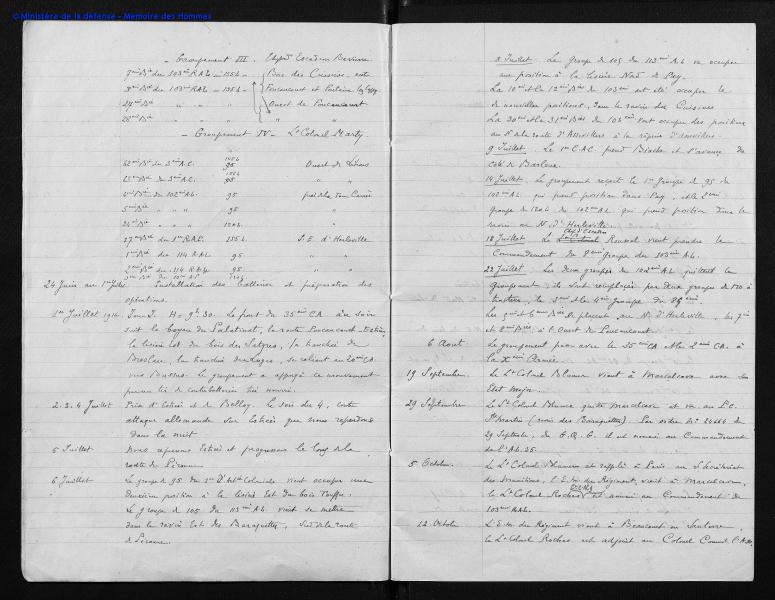 © Ministère de la défense - Mémoire des Hommes
- Groupement III. Chef d'Escadron
7ème Bie du 103ème RAL - 155 L - Bois des Cuisines - entre
8ème Bie du 103ème RAL - 155 L - Foucaucourt et Fontaine les Cappy
27ème Bie " " " Ouest de Foucaucourt
28ème Bie " " " "
- Groupement IV - Lt Colonel Marty
62ème Bie du 3ème A.C. 95 Ouest de Lihons
4ème Bie du 102ème AL. 95
5ème Bie " " " 95 "
26ème Bie " " " 120 L "
27ème Bie du 1er R.A.P. 155 L S.E. d'Herleville
1ère Bie du 114 RAL 95 " "
2ème Bie du 114 RAL 95 " "
24 Juin au 1er Juillet Installation des batteries et préparation des
opérations.
1er Juillet 1916. Jour J. H = 9h 30. Le front du 35ème CA au soir
suit le boyau du Palatinat, la route Foucaucourt-Estrées,
la lisière Est du bois des Satyres, la tranchée de
Breslau, la tranchée, se reliant au 20ème CA
vers Dussus. Le groupement a appuyé ce mouvement
par un tir de contrebatterie très nourri.
2. 3. 4 Juillet Prise d'Estrées et de Belloy. Le soir du 4, contre
attaque allemande sur Estrées que nous reperdons
dans la nuit
5 Juillet Nous reprenons Estrées et progressons le long de la
route de Péronne.
6 Juillet Le groupe de 95 du 2ème d'Artie Coloniale vient occuper une
deuxième position à la lisière Est du bois Touffu.
Le groupe de 105 du 113ème AL vient se mettre
dans le ravin Est des Baraquettes, Sud de la route
de Péronne.
8 Juillet. Le groupe de 105 du 113ème AL va occuper
une position à la lisière Nord de Fay.
La 10ème et la 12ème Bie du 103ème ont été occuper le
de nouvelles positions dans le ravin des Cuisines
La 30ème et la 31ème Bie du 102ème vont occuper des positions
au S. de la route d'Assevillers à la râperie d'Assevillers
9 Juillet. Le 1er C.A.C. prend Biaches et s'avance du
côté de Barleux.
14 Juillet. Le groupement reçoit le 1er Groupe de 95 du
102ème AL qui prend position dans Fay, et le 2ème
groupe de 120 L du 102ème AL qui prend position dans le
ravin au N. d'Herleville
18 Juillet Le Chef d'Escadron Roussel vient prendre le
Commandement du 2ème groupe du 103ème AL.
22 Juillet. Les deux groupes du 102ème AL quittent le
groupement; ils sont remplacés par deux groupes de 120 à
tracteurs, les 3ème et le 4ème groupe du 85ème.
Les 4ème et 6ème Bie se placent au N. d'Herleville, les 7ème
et 8ème Bie, à l'Ouest de Foucaucourt
6 Août Le groupement passe avec le 35ème CA et le 2ème CA à
la Xème Armée.
19 Septembre. Le Lt Colonel Blavier vient à Marcelcave avec son
Etat Major.
29 Septembre Le Lt Colonel Blavier quitte Marcelcave et va au P.C.
St Martin (ravin des Baraquettes). Par ordre No 24664 du
29 Septembre, du G.Q.G. il est nommé au Commandement
de l'AL 35.
5 Octobre. Le Lt Colonel Blavier est rappelé à Paris au S/Secrétariat
des Munitions, l'E.M. du Régiment, resté à Marcelcave,
le Lt Colonel Rochas est nommé au Commandement du
103ème RAL.
12 Octobre L'E.M. du Régiment vient à Beaucourt en Santerre,
le Lt Colonel Rochas est adjoint au Colonel Commt l'A.L.